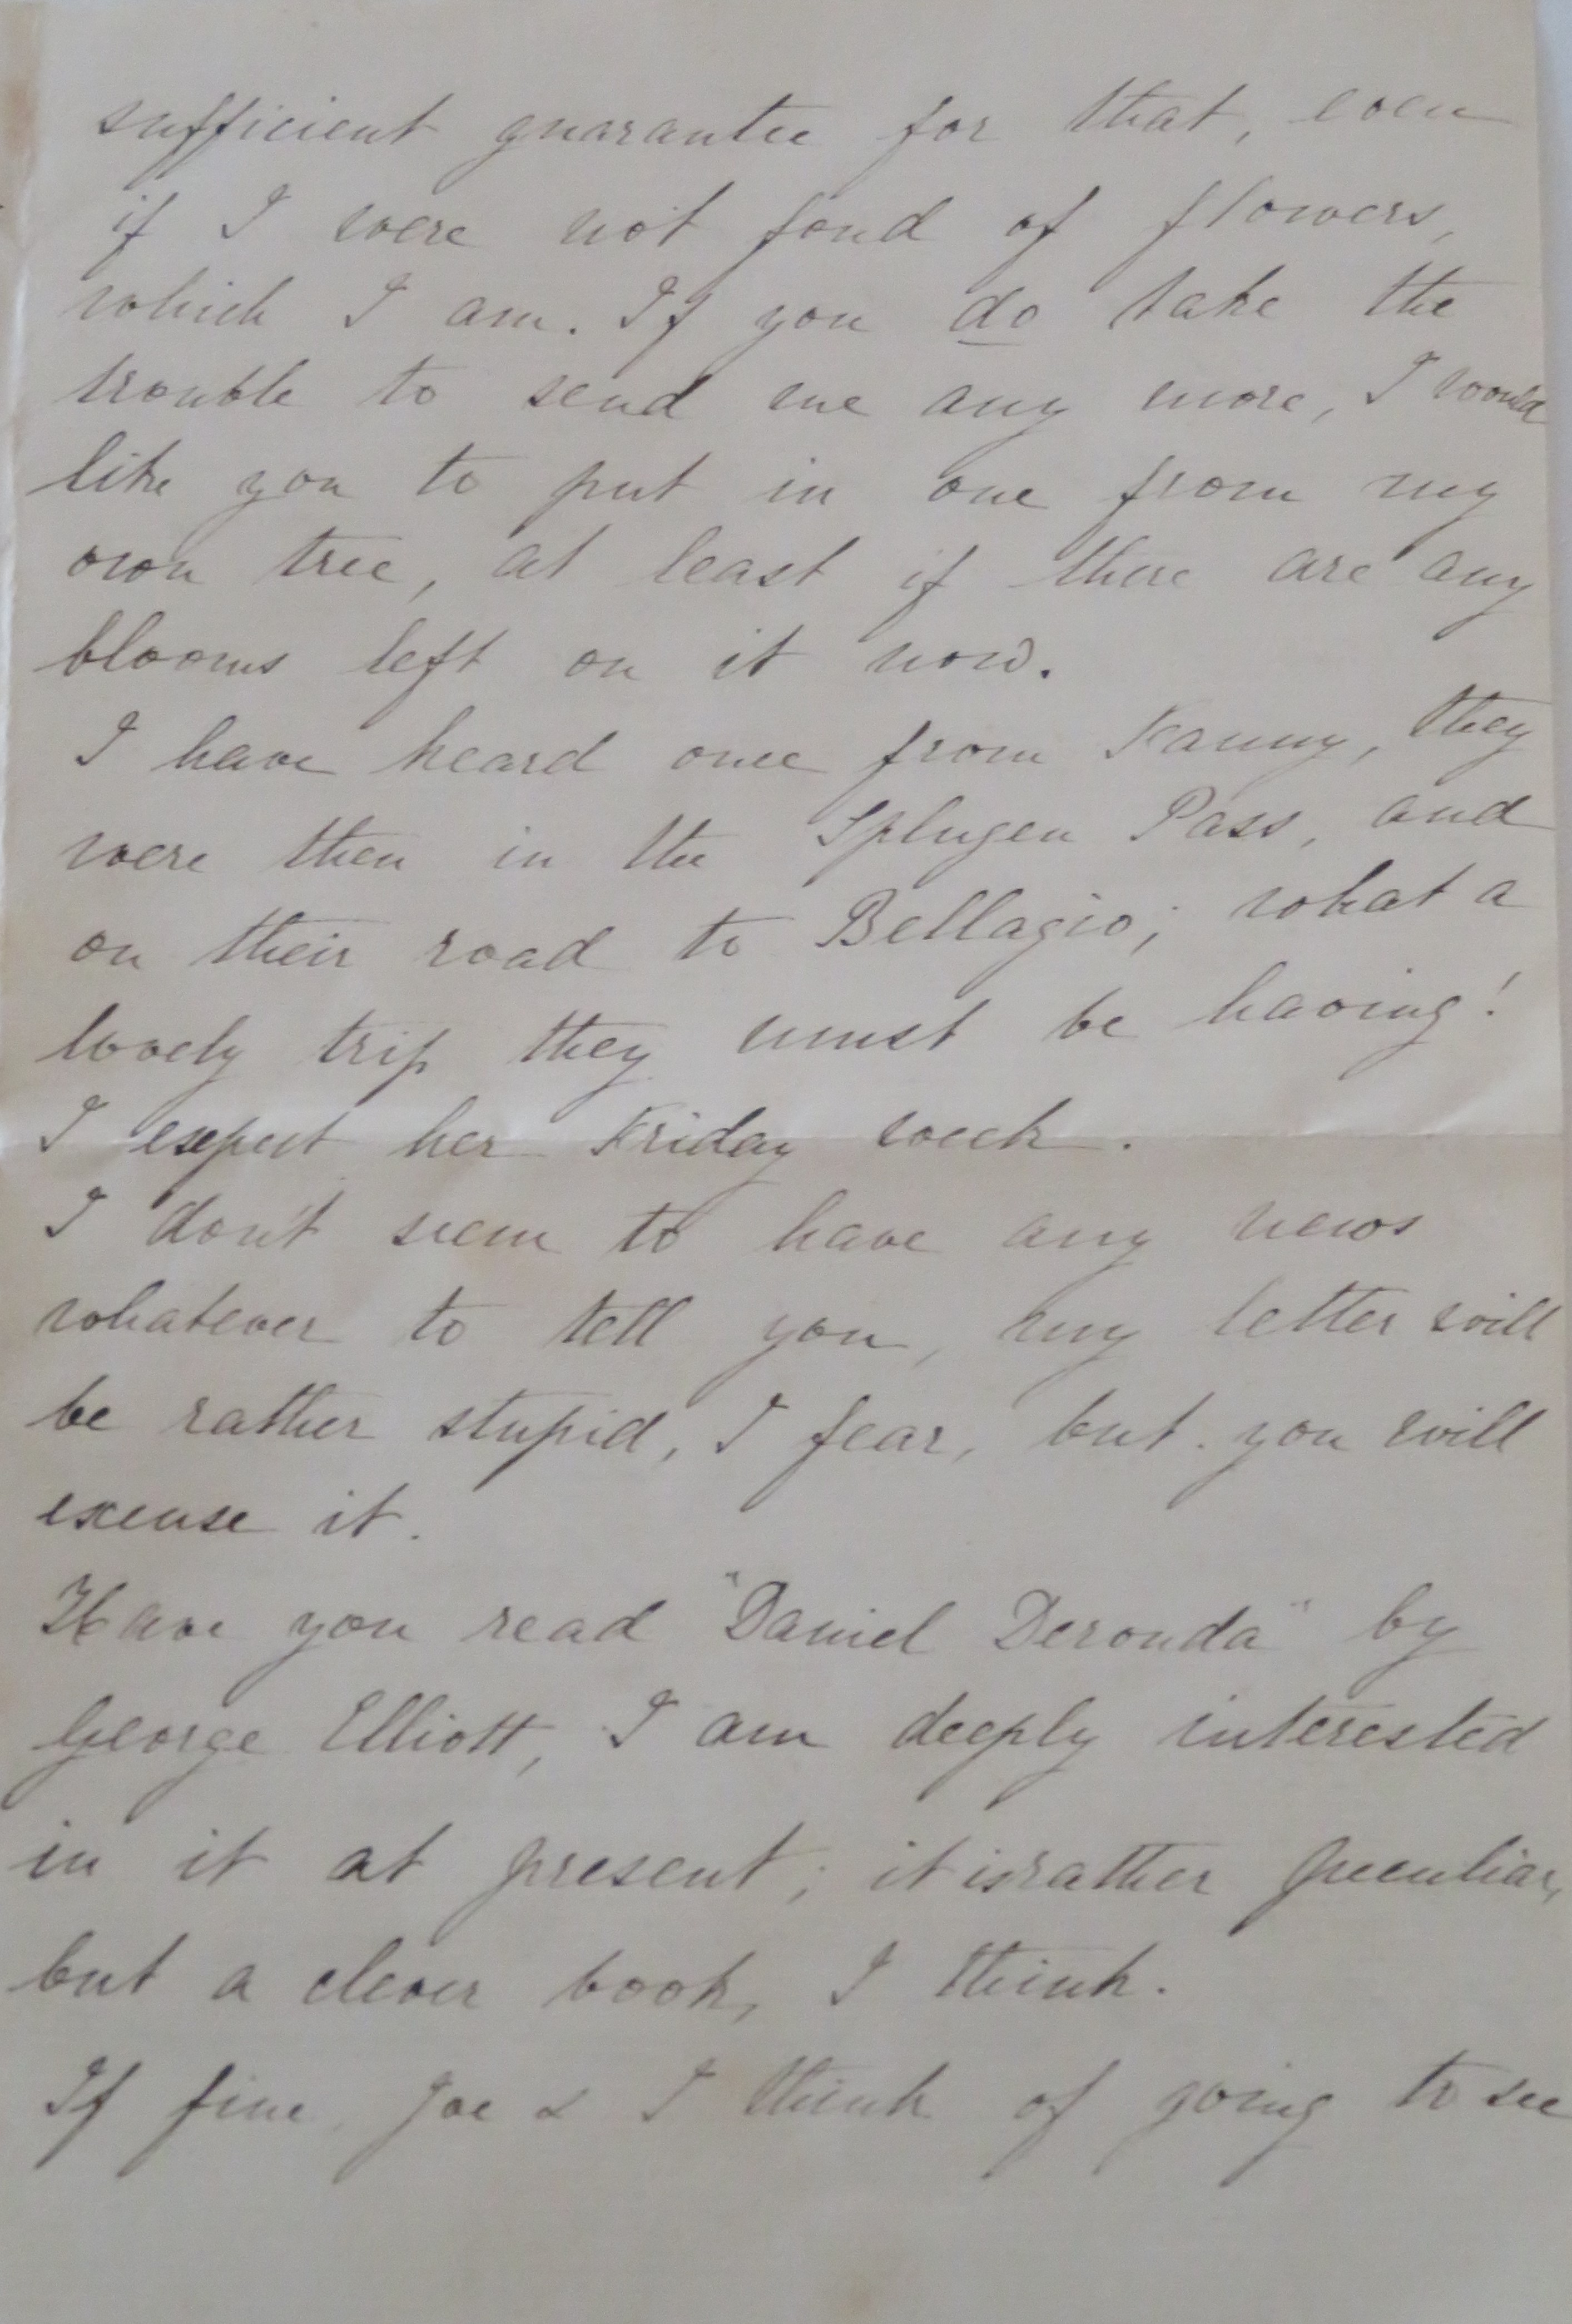 sufficient guarantee for that, even
if I were not fond of flowers,
which I am. If you do take the
trouble to send me any more, I would
like you to put in one from my
own tree, at least if there are any
blooms left on it now.
I have heard once from Fanny, they
were then in the Splugen Pass, and
on their road to Bellagio; what a
lovely trip they must be having!
I expect her Friday week.
I don't seem to have any news
whatever to tell you, my letter will
be rather stupid, I fear, but you will
excuse it.
Have you read "Daniel Deronda" by
George Elliott, I am deeply interested
in it at present; it is rather peculiar,
but a clever book, I think.
If fine Joe & I think of going to see